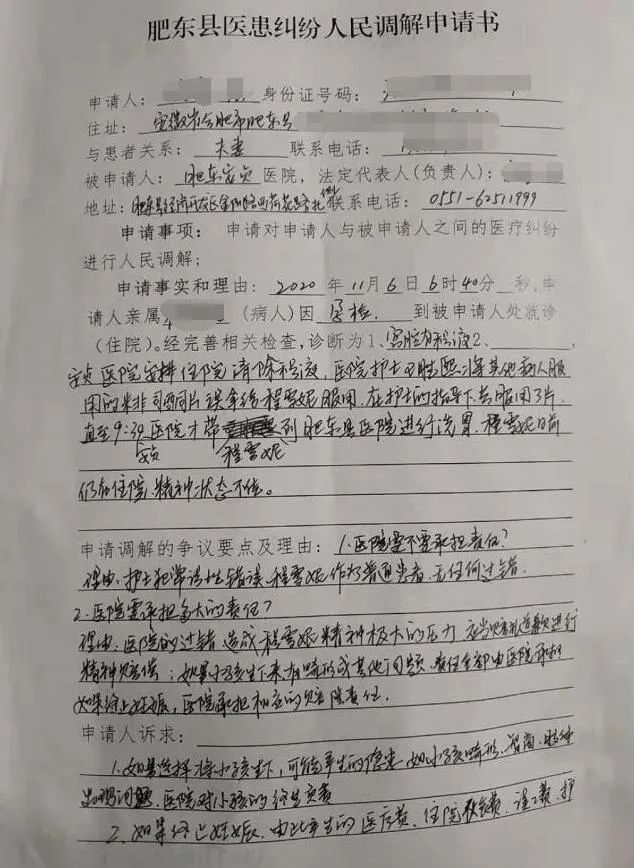 肥东县医患纠纷人民调解申请书
申请人： 身份证号码：
住址：安徽省合肥市肥东县
与患者关系：夫妻 联系电话：
被申请人：肥东安贞医院，法定代表人(负责人)：
地址：肥东县经济开发区金阳路西荷花路 联系电话：0551-62511999
申请事项：申请对申请人与被申请人之间的医疗纠纷
进行人民调解；
申请事实和理由：2020年11月6日6时40分 秒，申
请人亲属 (病人)因孕检 到被申请人处就诊
(住院)。经完善相关检查，诊断为1、宫腔有积液2、
安贞医院安排住院清除积液，医院护士 将其他病人服
用的米非司酮片误拿给程雪妮服用，在护士的指导下共服用3片，
直至9:30医院才带 到肥东县医院进行洗胃，程雪妮目前
安贞 程雪妮
仍在住院，精神状态不佳。
申请调解的争议要点及理由：1、医院需不需承担责任？
理由：护士犯常识性错误，程雪妮作为普通患者，无任何过错。
2、医院需承担多大的责任？
理由：医院的过错造成程雪妮精神极大的压力，应当 进行
精神赔偿；如果小孩生下来有畸形或其他问题，责任全部由医院承担
如果终止妊娠，医院承担相应的赔偿责任。
申请人诉求：
1、如果选择 小孩生下，可能产生的 如小孩畸形、智商、精神
出现问题，医院对小孩的终生负责
2、如果终止妊娠，由此产生的医疗费、住院 费、误工费、护